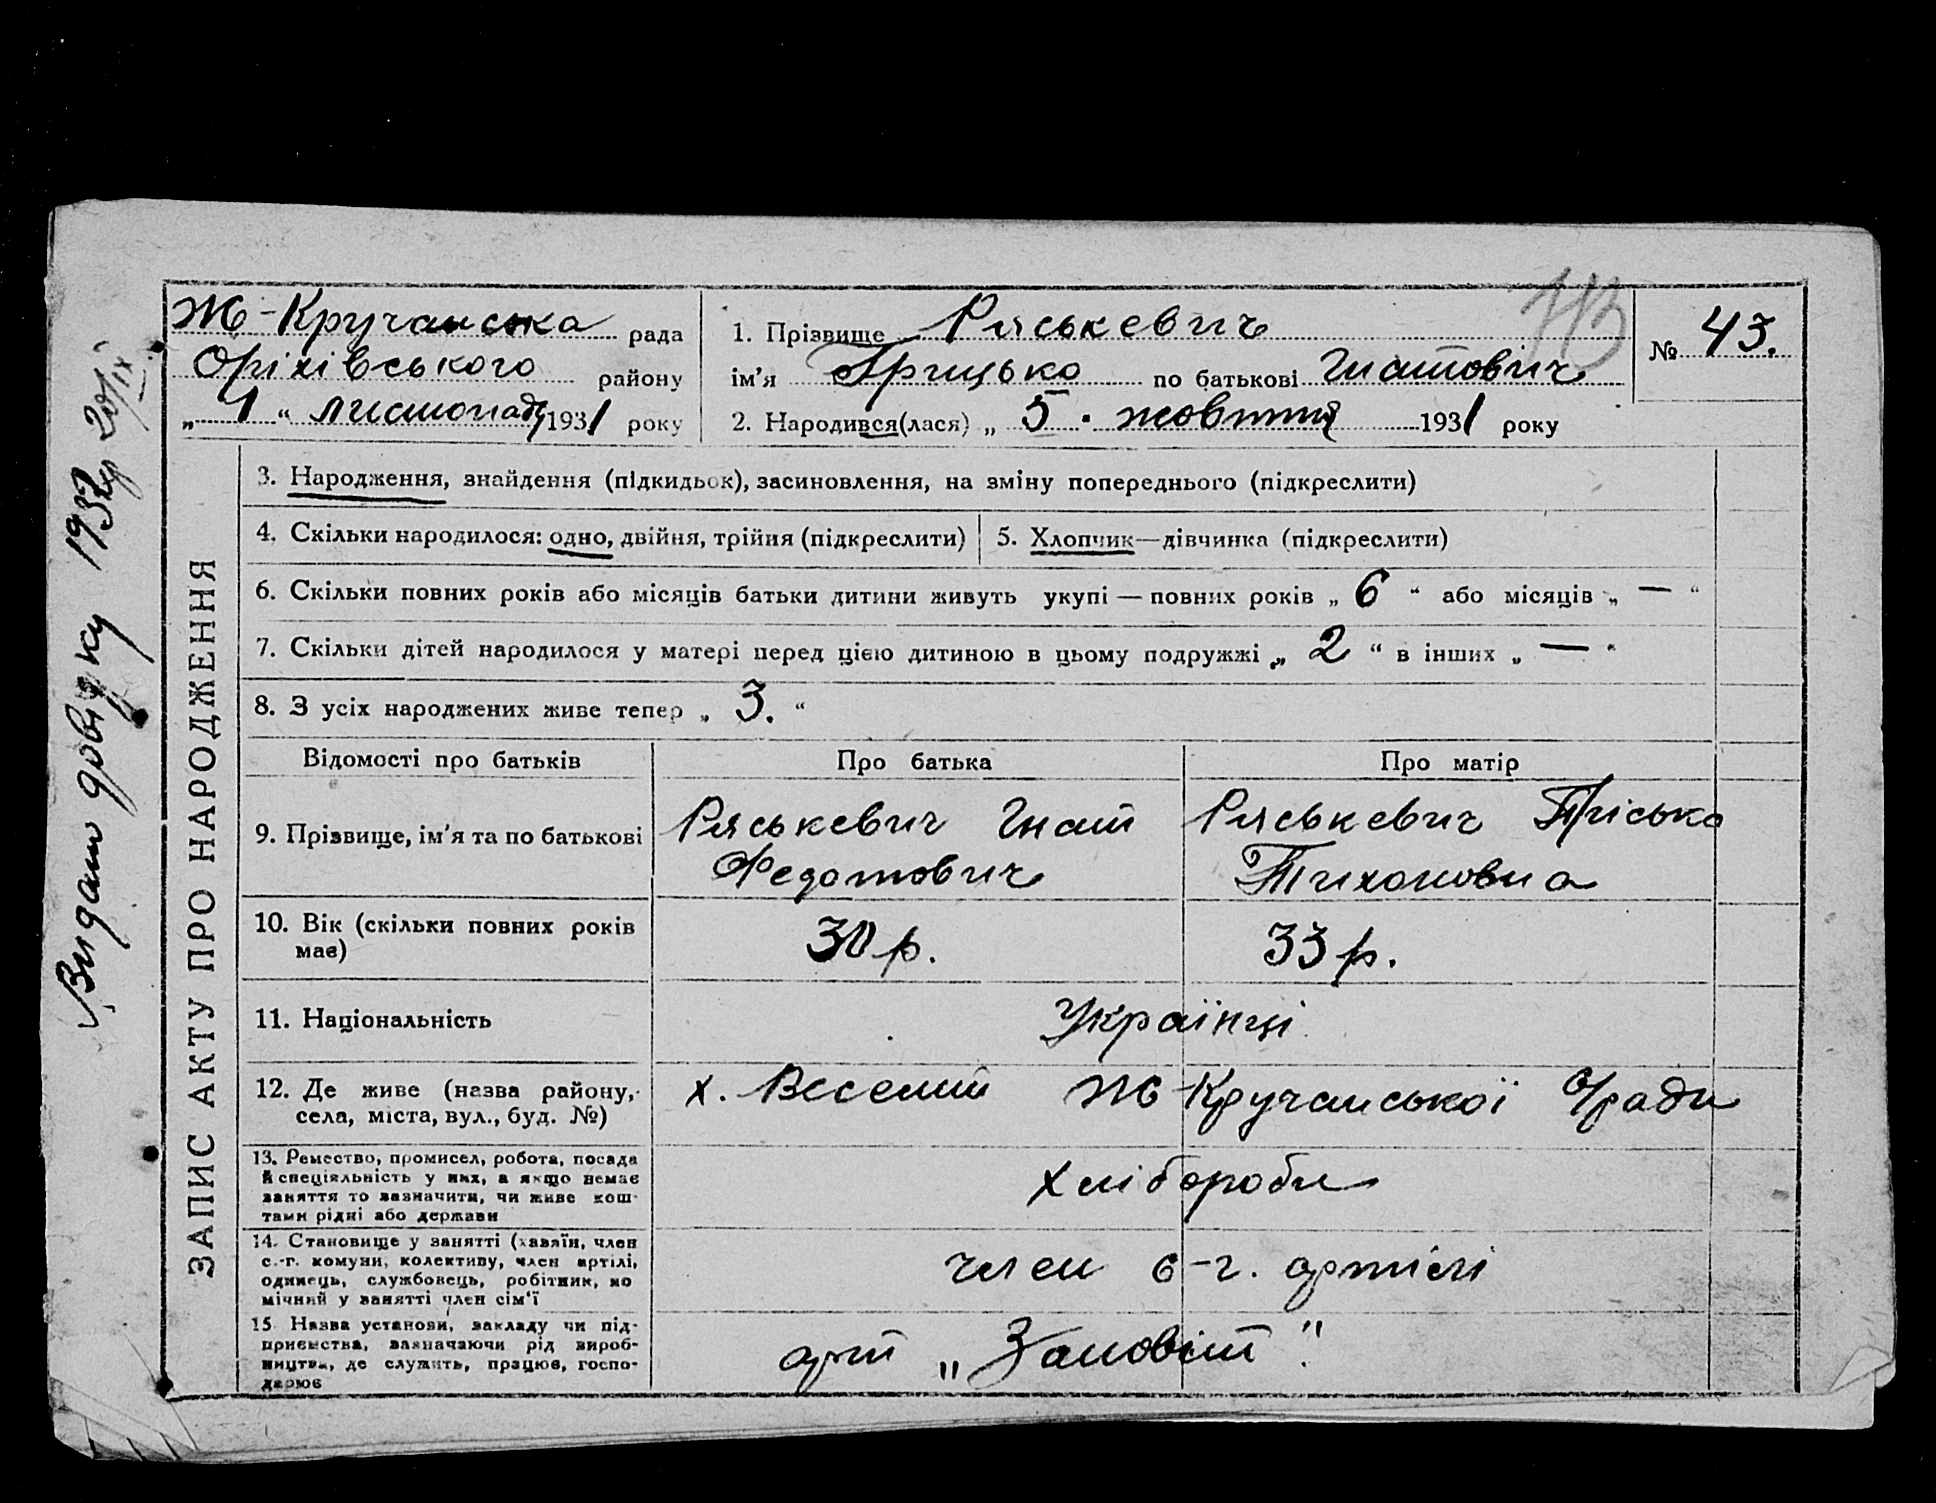 Ж-Кручанська рада
Оріхівського району
„ 1 “ листопада 1931 року
1. Прізвище Ряськевич
ім'я Грицько по батькові Гнатович
2. Народився(лася) „ 5 . жовтня 1931 року
№ 43.
Видат довідку 1932р 20/IX
ЗАПИС АКТУ ПРО НАРОДЖЕННЯ
3. Народження, знайдення (підкидьок), засиновлення, на зміну попереднього (підкреслити)
4. Скільки народилося: одно, двійня, трійня (підкреслити)
5. Хлопчик—дівчинка (підкреслити)
6. Скільки повних років або місяців батьки дитини живуть укупі — повних років „ 6 “ або місяців „ — “
7. Скільки дітей народилося у матері перед цією дитиною в цьому подружжі „ 2 “ в інших „ — “
8. З усіх народжених живе тепер „ 3. “
Відомості про батьків
Про батька
Про матір
9. Прізвище, ім'я та по батькові
Ряськевич Гнат
Федотович
Ряськевич Пріська
Тихоновна
10. Вік (скільки повних років
має)
30 р.
33 р.
11. Національність
Українці
12. Де живе (назва району,
села, міста, вул., буд. №)
х. Веселий Ж-Кручанської с/ради
13. Ремество, промисел, робота, посада
й спеціяльність у них, а якщо немає
заняття то зазначити, чи живе кош-
тами рідні або держави
Хлібороби
14. Становище у занятті (хазяїн, член
с.-г. комуни, колективу, член артілі,
одинець, службовець, робітник, по
мічний у занятті член сім'ї
член с-г. артілі
15. Назва установи, закладу чи під-
приємства, зазначаючи рід вироб-
ництва, де служить, працює, госпо-
дарює
арт „Заповіт".